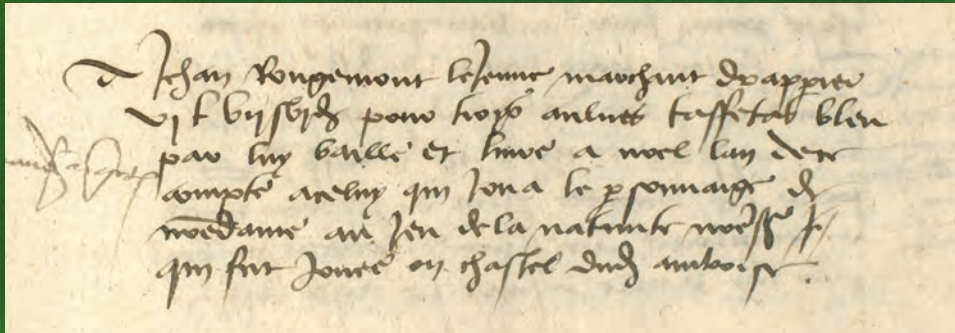 A Jehan Rougemont le Jeune marchant drappier
vj l vij s vj d pour troys aulnes taffetas bleu
par luy baille et livre a noel lan de ce
compte a celuy qui Joua le p̱sonnaige de
n̄re dame au Jeu de la nativite n̄re s̄r
qui fut Joue ou chastel dud amboise